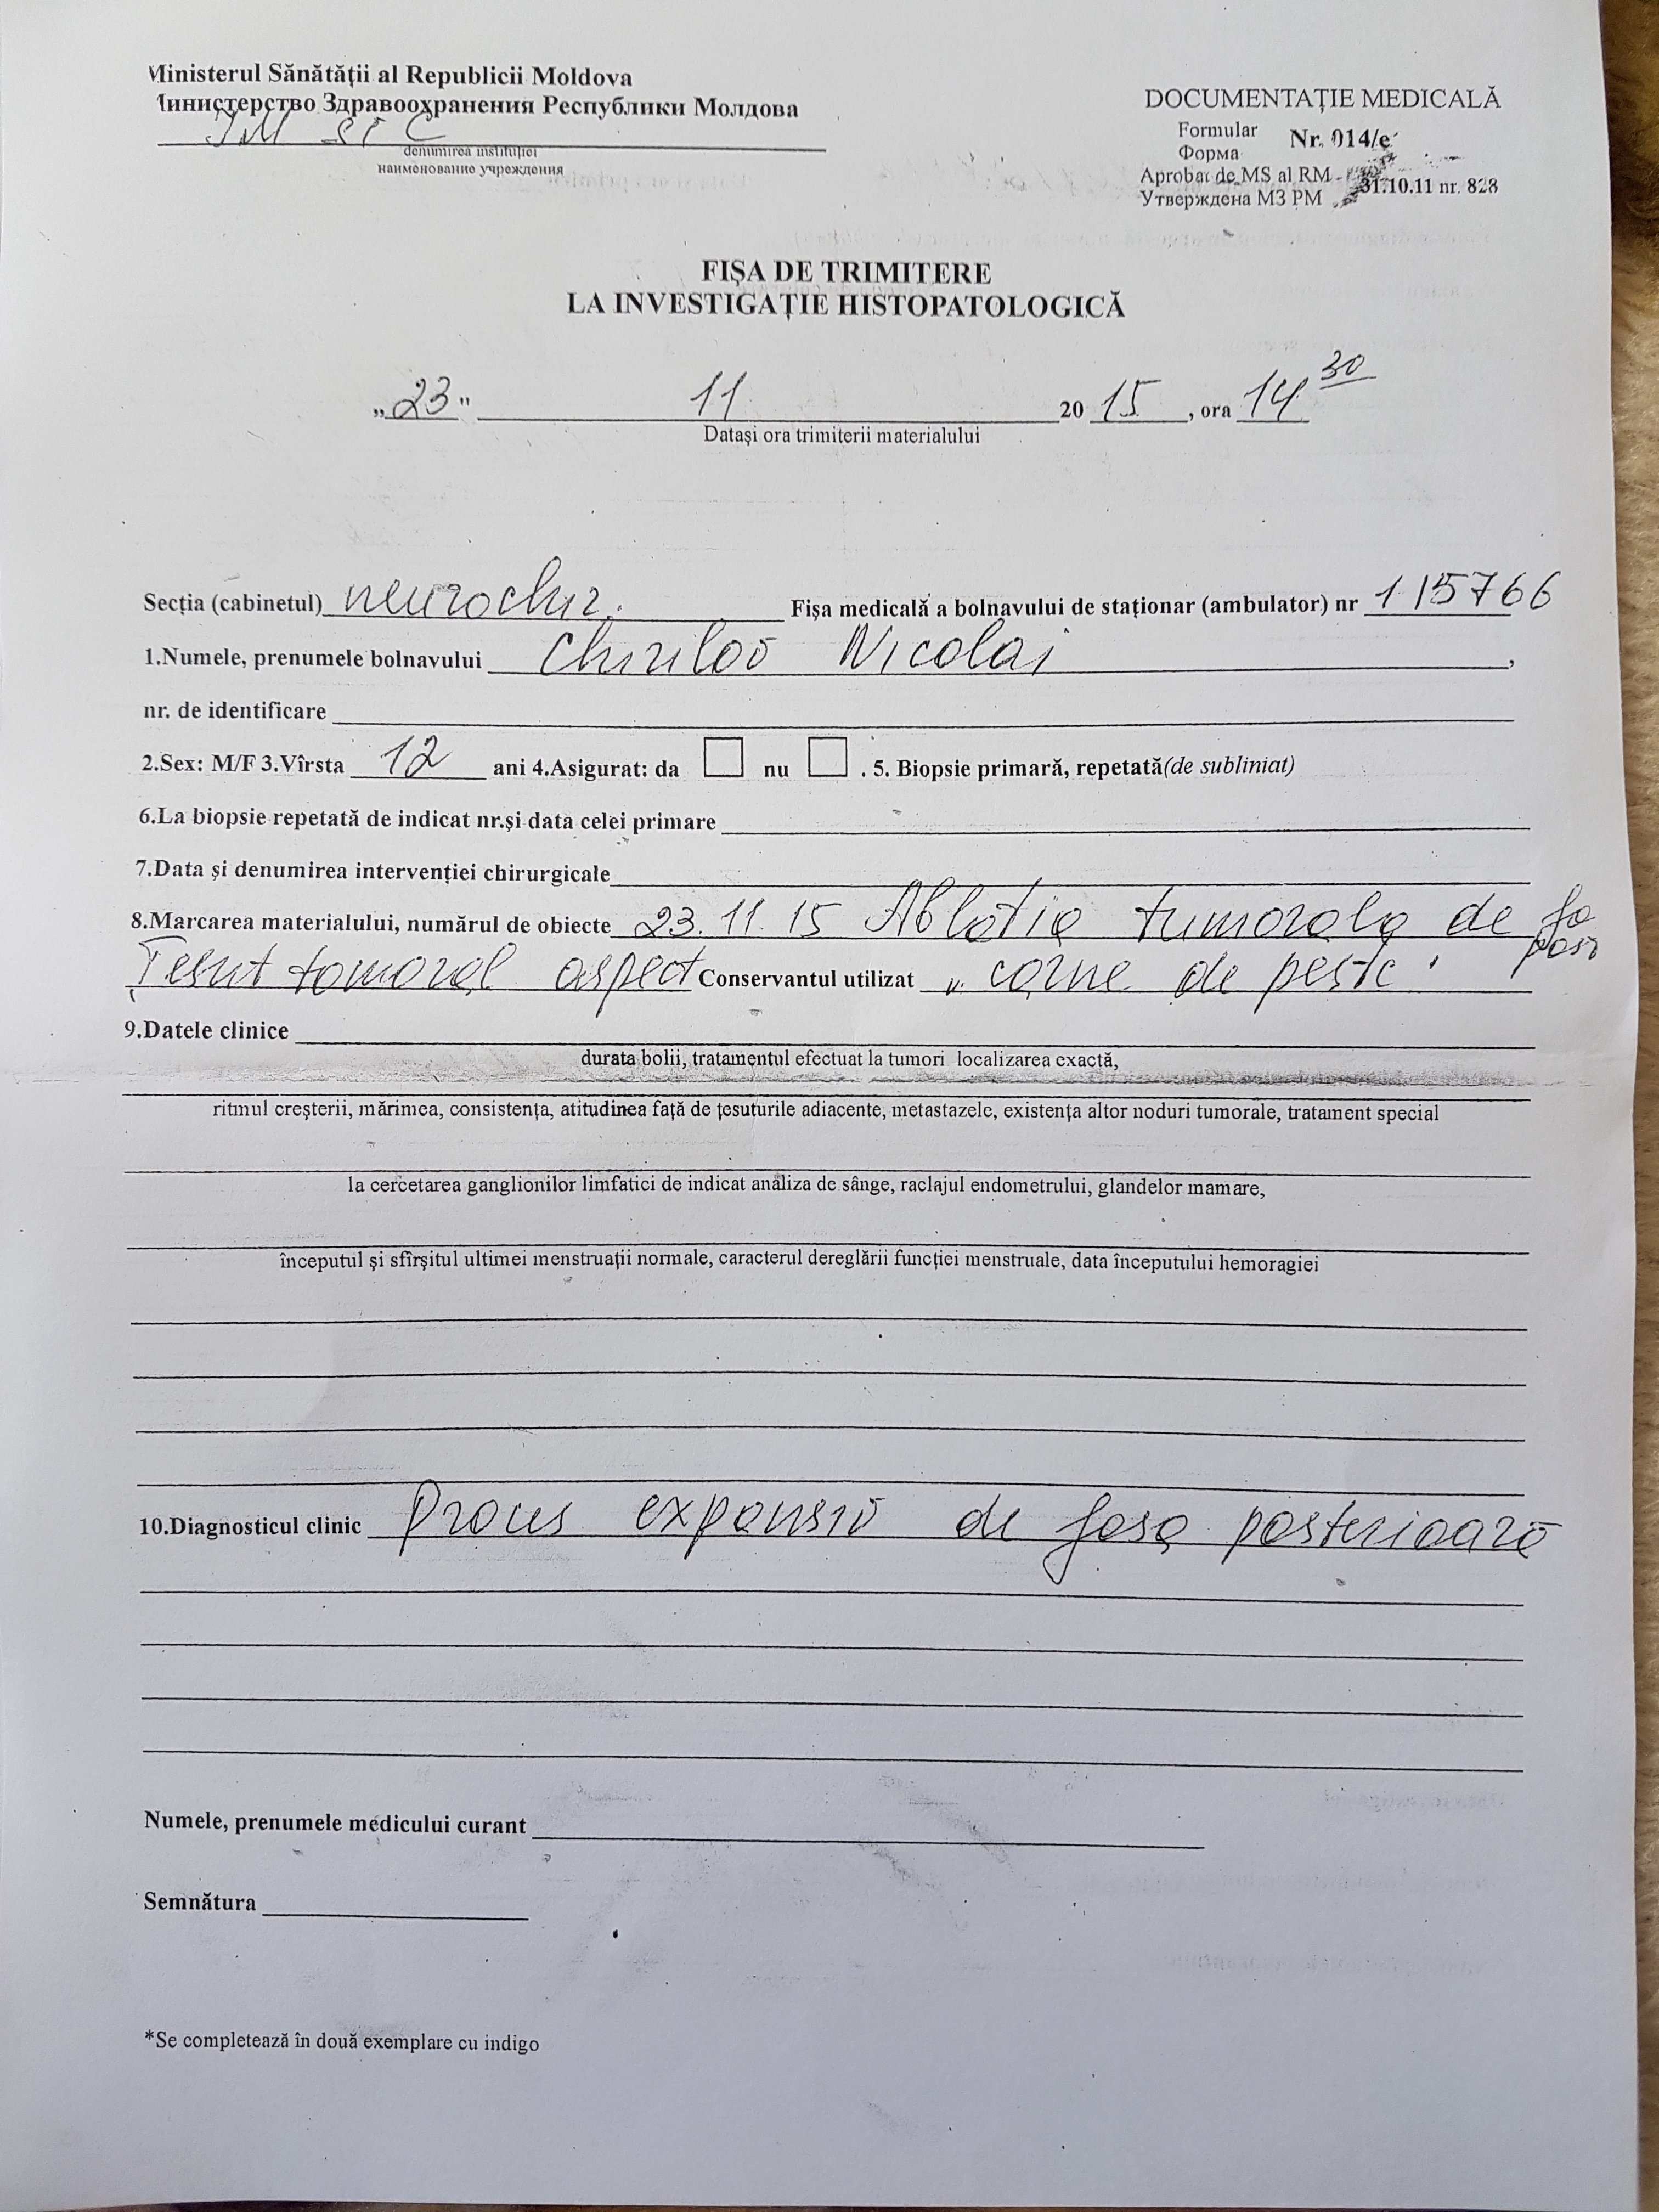 Ministerul Sănătății al Republicii Moldova
Министерство Здравоохранения Республики Молдова
IM și C
denumirea instituției
наименование учреждения
DOCUMENTAȚIE MEDICALĂ
Formular
Форма
Nr. 014/e
Aprobat de MS al RM
31.10.11 nr. 828
Утверждена МЗ РМ
FIȘA DE TRIMITERE
LA INVESTIGAȚIE HISTOPATOLOGICĂ
„23" 11 2015, ora 14 30
Datași ora trimiterii materialului
Secția (cabinetul) neurochir. Fișa medicală a bolnavului de staționar (ambulator) nr 115766
1.Numele, prenumele bolnavului Chirilov Nicolai,
nr. de identificare
2.Sex: M/F 3.Vîrsta 12 ani 4.Asigurat: da nu . 5. Biopsie primară, repetată(de subliniat)
6.La biopsie repetată de indicat nr.și data celei primare
7.Data și denumirea intervenției chirurgicale
8.Marcarea materialului, numărul de obiecte 23.11.15 Ablatia tumorala de fo
post
Țesut tumoral aspect Conservantul utilizat „ carne de pește "
9.Datele clinice
durata bolii, tratamentul efectuat la tumori localizarea exactă,
ritmul creșterii, mărimea, consistența, atitudinea față de țesuturile adiacente, metastazele, existența altor noduri tumorale, tratament special
la cercetarea ganglionilor limfatici de indicat analiza de sânge, raclajul endometrului, glandelor mamare,
începutul și sfîrșitul ultimei menstruații normale, caracterul dereglării funcției menstruale, data începutului hemoragiei
10.Diagnosticul clinic Proces expansiv de fosa posterioară
Numele, prenumele medicului curant
Semnătura
*Se completează în două exemplare cu indigo